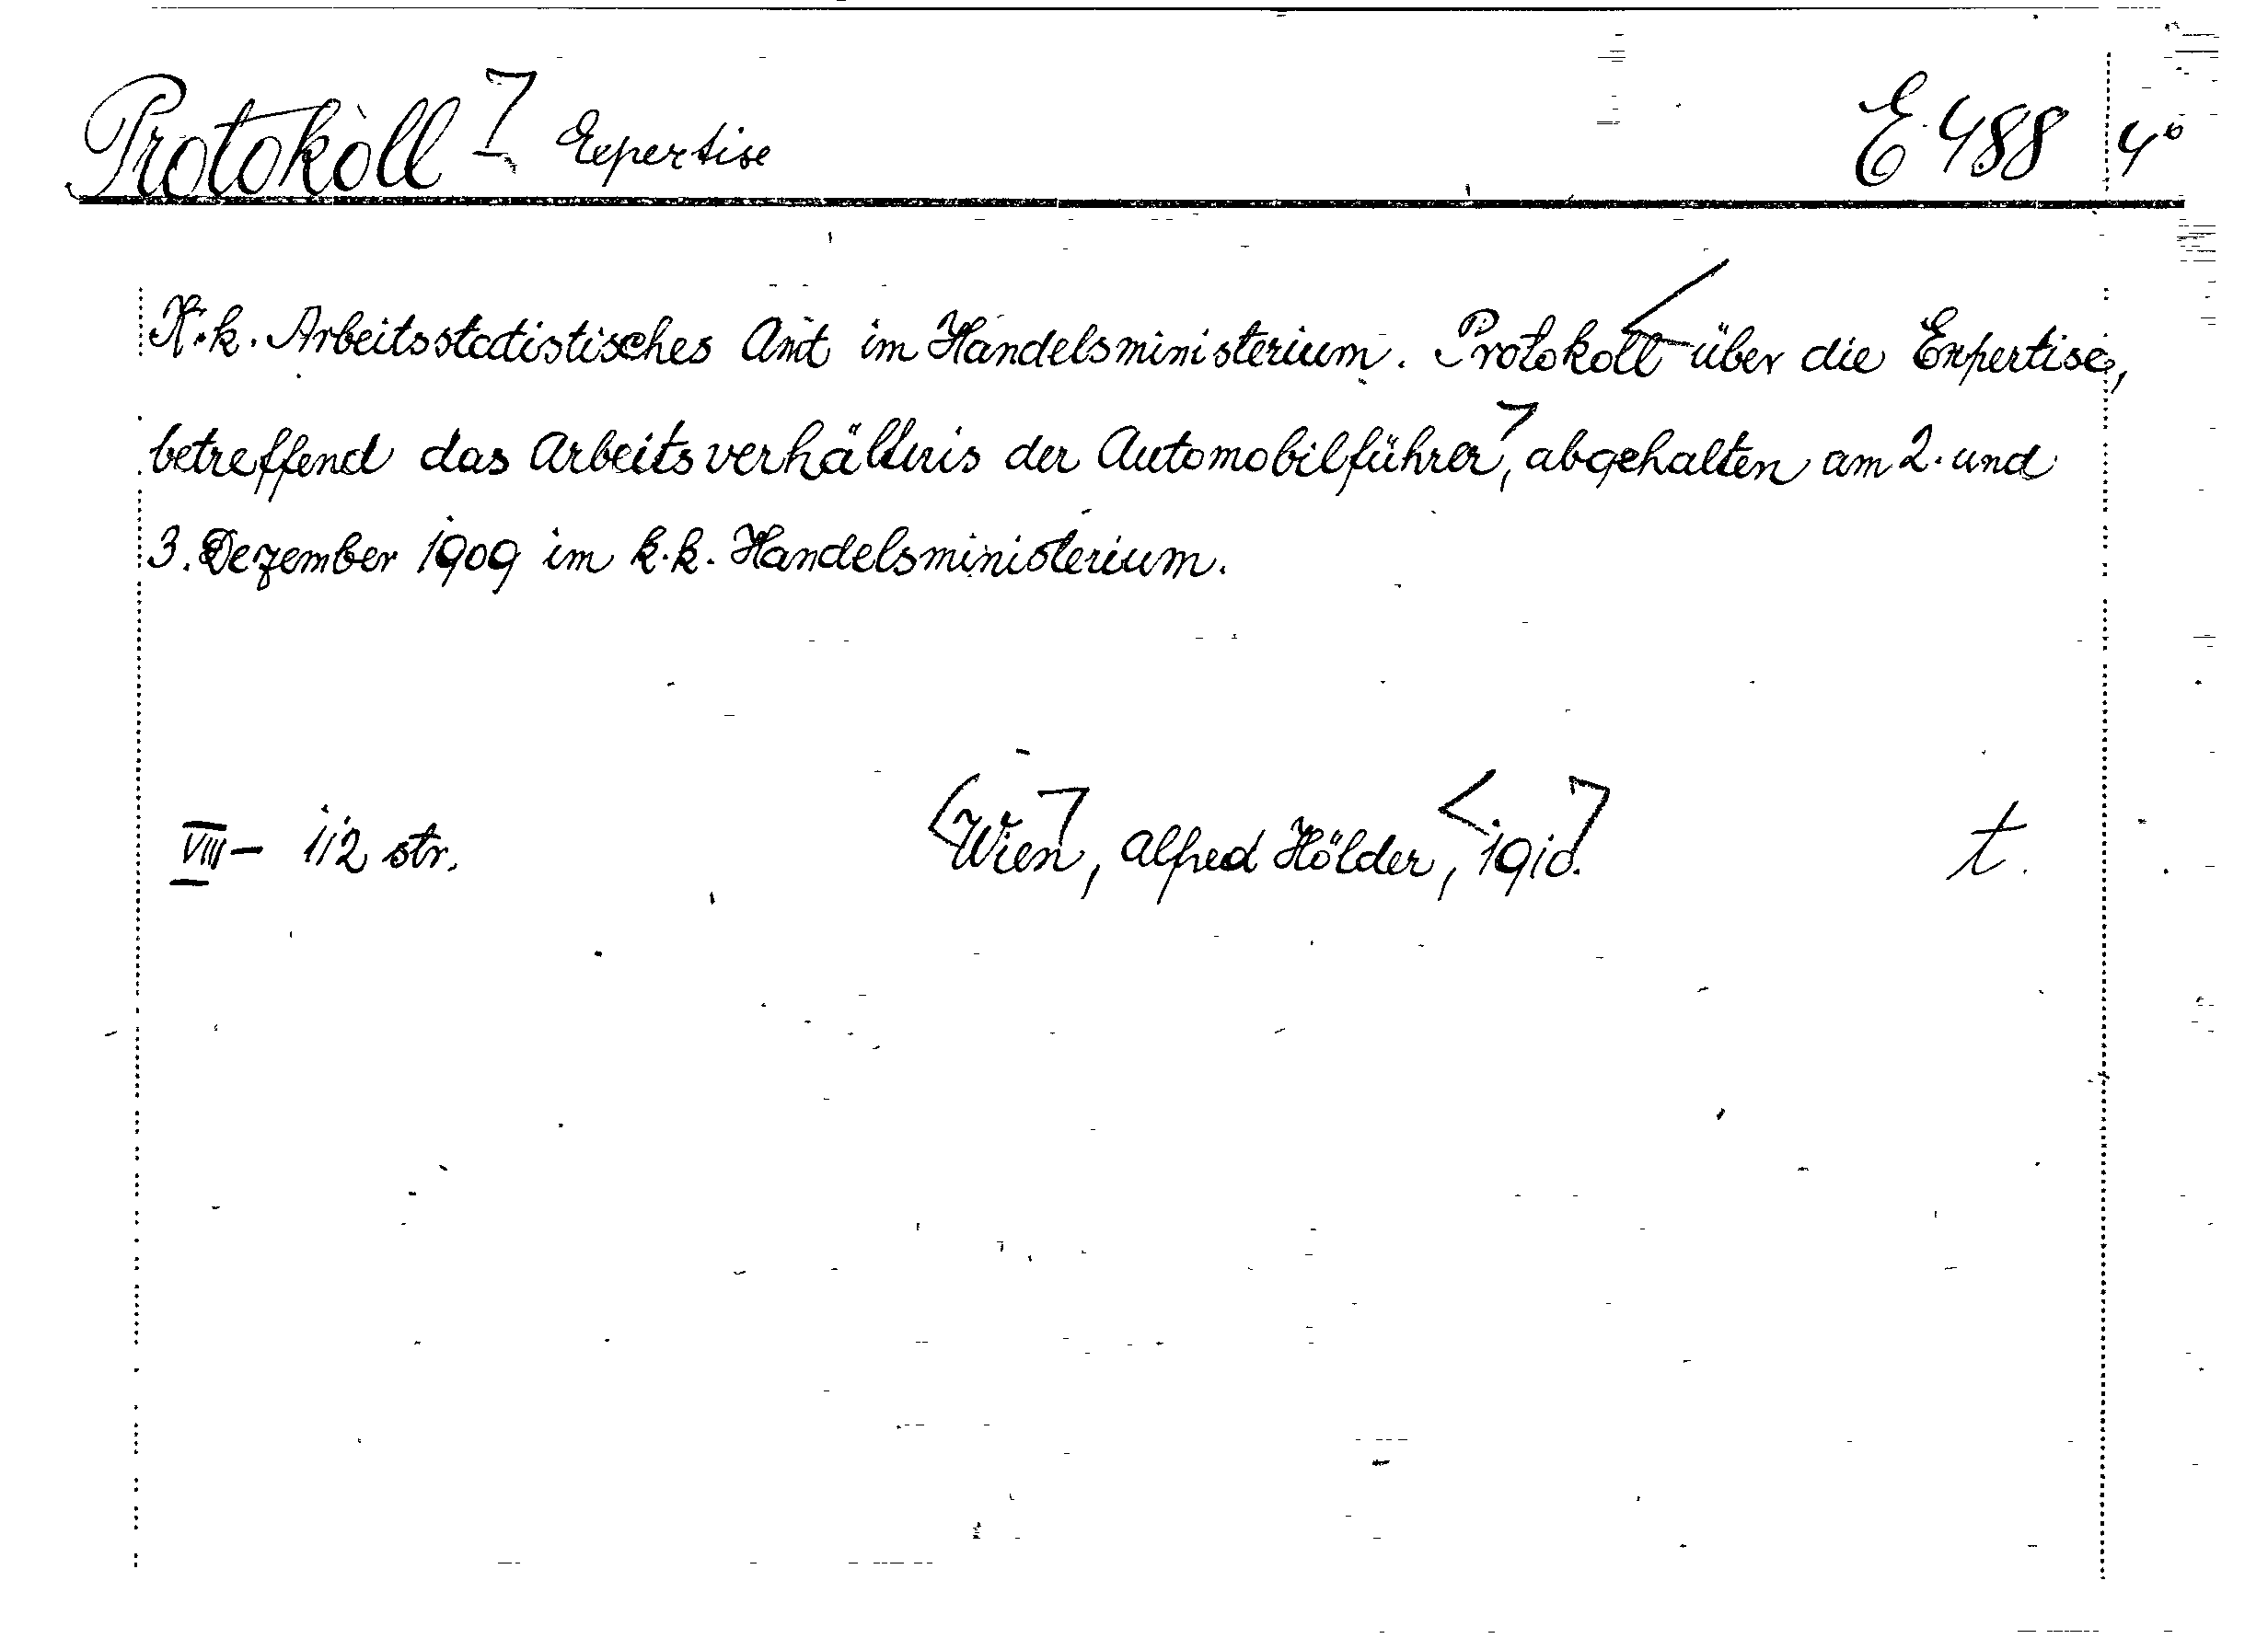 Protokoll Expertise E 488 4°
K.k. Arbeitsstatistisches Amt im Handelsministerium. Protokoll über die Expertise,
betreffend das Arbeitsverhältnis der Automobilführer, abgehalten am 2. und
3. Dezember 1909 im k.k. Handelsministerium.
VIII – 112 str. Wien, Alfred Hölder, 1910. t.